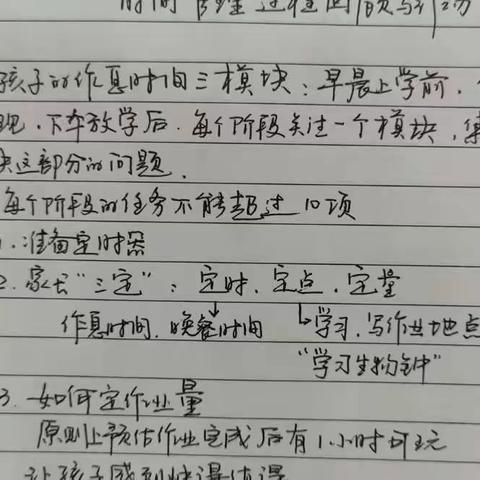 时间管理过程回顾与
孩子的作息时间三模块：早晨上学前、
现、下午放学后。每个阶段关注一个模块，集
决这部分的问题。
每个阶段的任务不能超过10项
1.准备定时器
2.家长“三定”：定时、定点、定量
作息时间、晚餐时间 学习、写作业地点
“学习生物钟”
3.如何定作业量
原则上预估作业完成后有1小时可玩
让孩子感到快